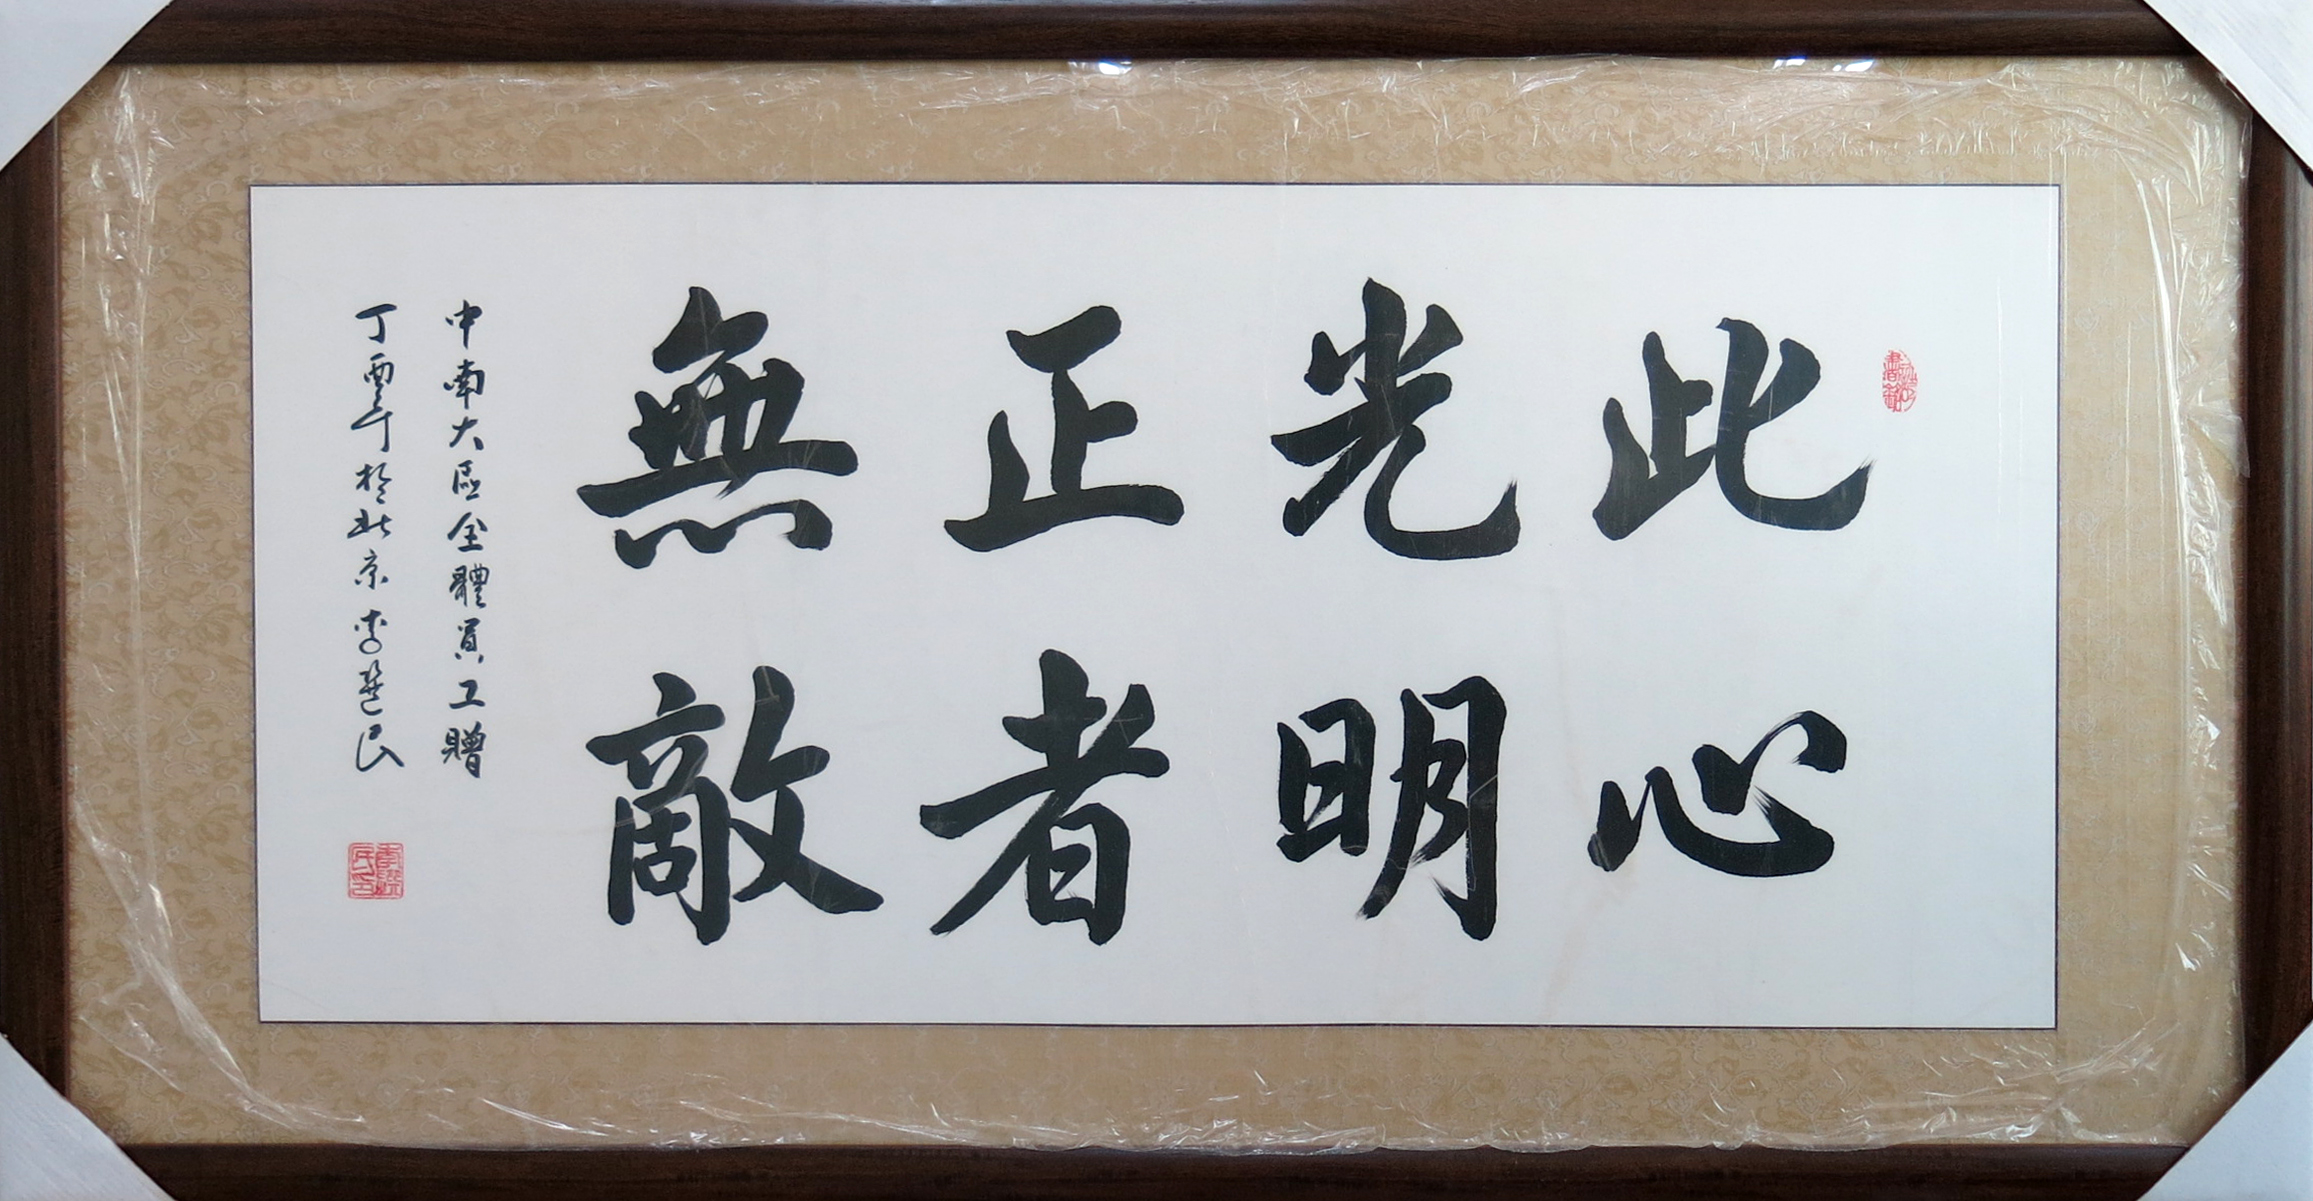 此心
光明
正者
無敵
中南大區全體員工贈
丁酉年於北京李楚民